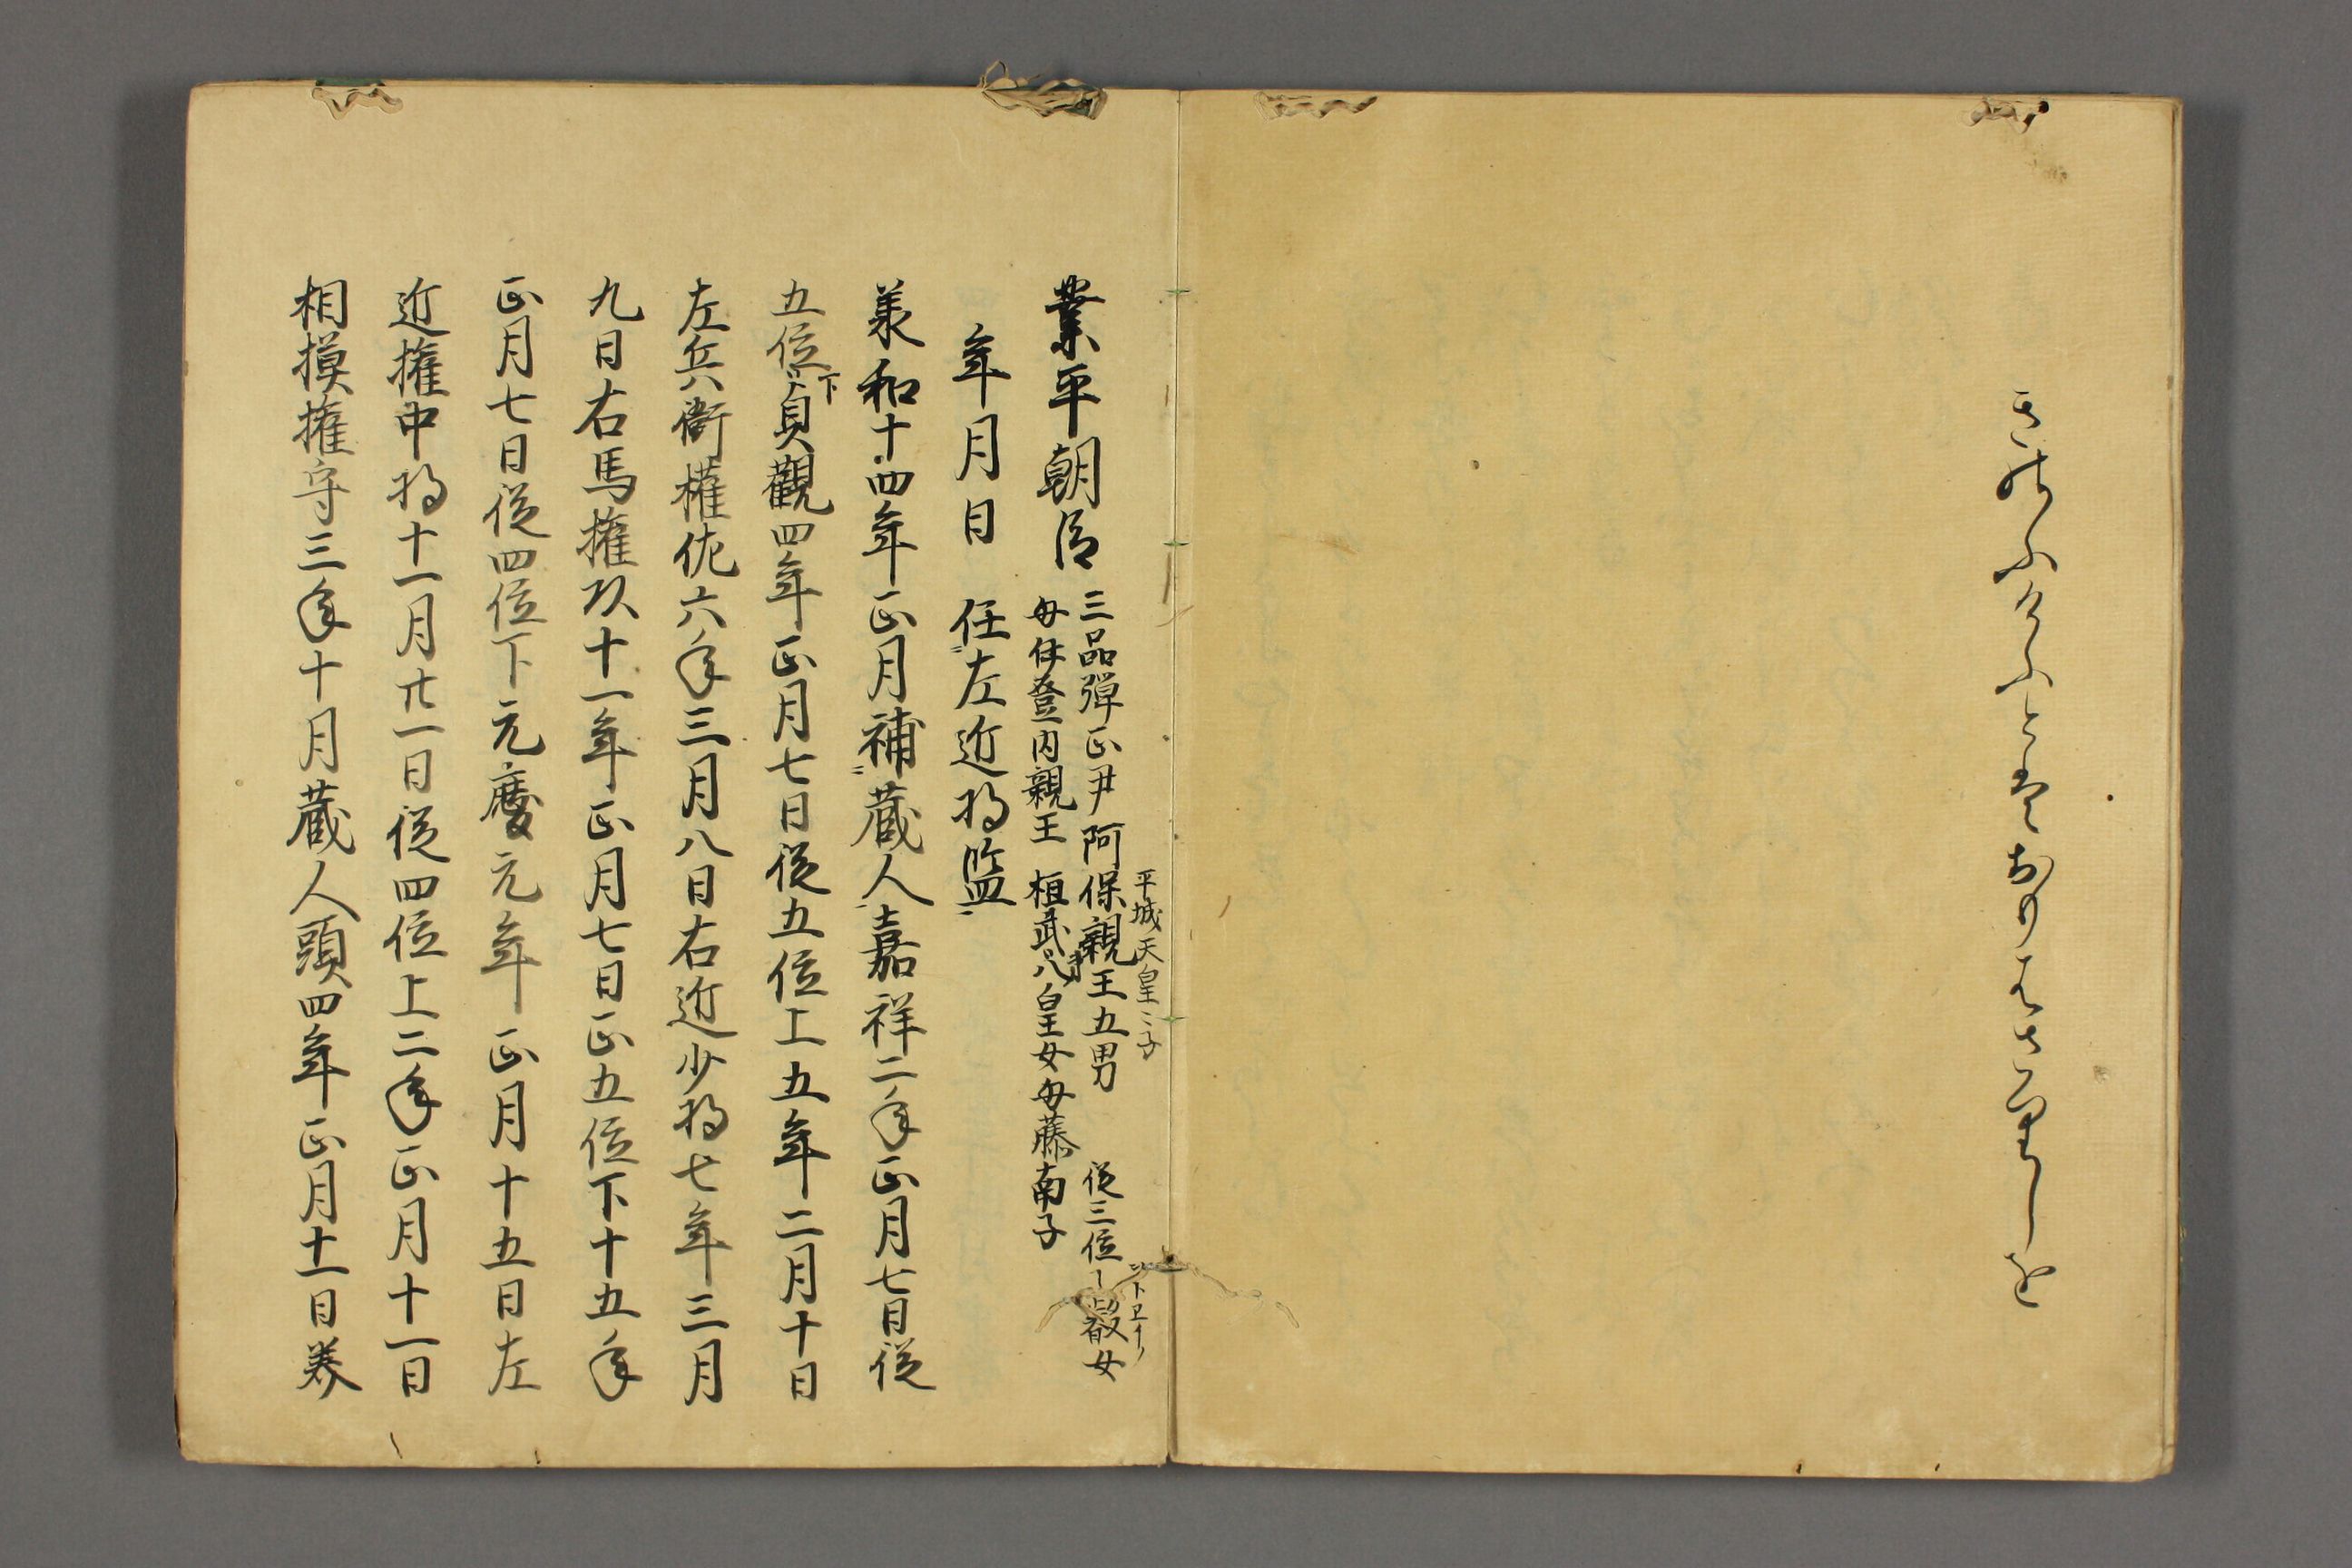 きのふけふとはおもはさりしを
業平朝臣
三品彈正尹阿保親王五男
平城天皇ゝ子
母伊登内親王 桓武八皇女母藤南子
従三位
女
年月日 任左近将監
羕和十四年正月補蔵人嘉祥二年正月七日従
五位下貞觀四年正月七日従五位上五年二月十日
左兵衛權佐六年三月八日右近少将七年三月
九日右馬權頭十一年正月七日正五位下十五年
正月七日従四位下元慶元年正月十五日左
近權中将十一月廿一日従四位上二年正月十一日
相摸權守三年十月蔵人頭四年正月十一日兼